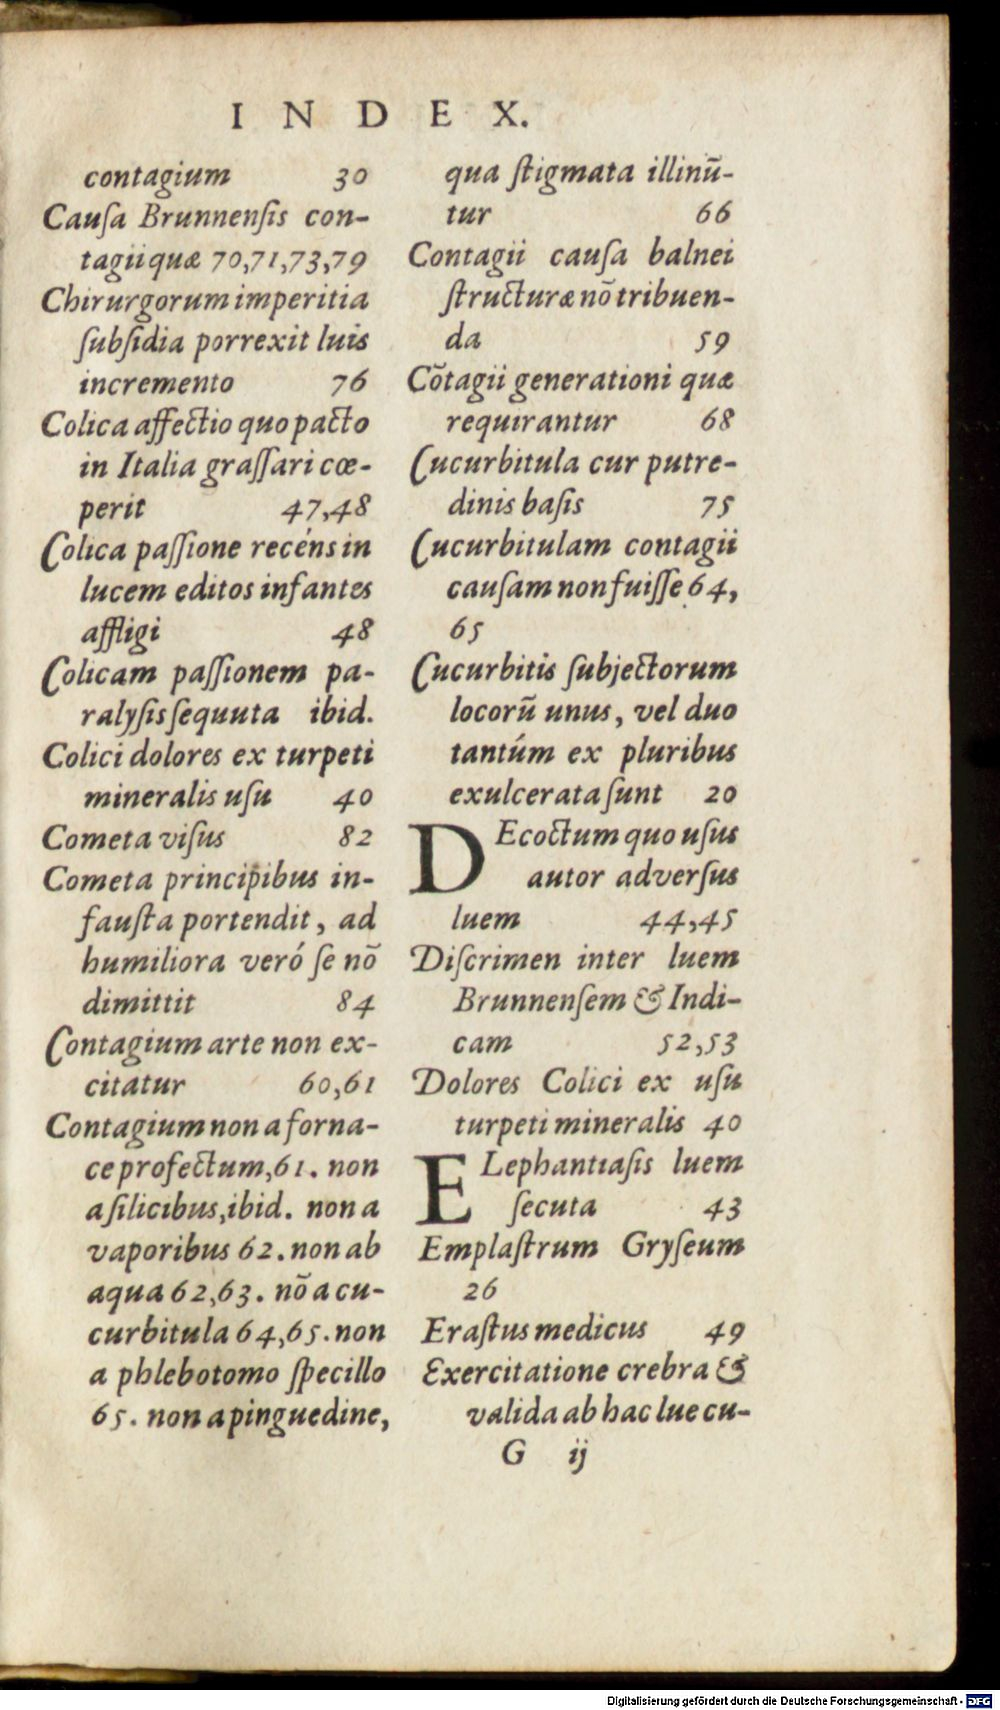 INDEX.
contagium 30
Cauſa Brunnenſis con-
tagii quæ 70,71,73,79
Chirurgorum imperitia
ſubſidia porrexit luis
incremento 76
Colica affectio quo pacto
in Italia graſſari cœ-
perit 47,48
Colica paſſione recéns in
lucem editos infantes
affligi 48
Colicam paſſionem pa-
ralyſis ſequuta ibid.
Colici dolores ex turpeti
mineralis uſu 40
Cometa viſus 82
Cometa principibus in-
fauſta portendit, ad
humiliora veró ſe nō
dimittit 84
Contagium arte non ex-
citatur 60,61
Contagium non a forna-
ce profectum,61. non
a ſilicibus,ibid. non a
vaporibus 62. non ab
aqua 62,63. nō a cu-
curbitula 64,65. non
a phlebotomo ſpecillo
65. non a pinguedine,
qua ſtigmata illinū-
tur 66
Contagii cauſa balnei
ſtructuræ nō tribuen-
da 59
Cōtagii generationi quæ
requirantur 68
Cucurbitula cur putre-
dinis baſis 75
Cucurbitulam contagii
cauſam non fuiſſe 64,
65
Cucurbitis ſubjectorum
locorū unus, vel duo
tantúm ex pluribus
exulcerata ſunt 20
DEcoctum quo uſus
autor adverſus
luem 44,45
Diſcrimen inter luem
Brunnenſem & Indi-
cam 52,53
Dolores Colici ex uſu
turpeti mineralis 40
ELephantiaſis luem
ſecuta 43
Emplaſtrum Gryſeum
26
Eraſtus medicus 49
Exercitatione crebra &
valida ab hac lue cu-
G ij
Digitalisierung gefördert durch die Deutsche Forschungsgemeinschaft - DFG